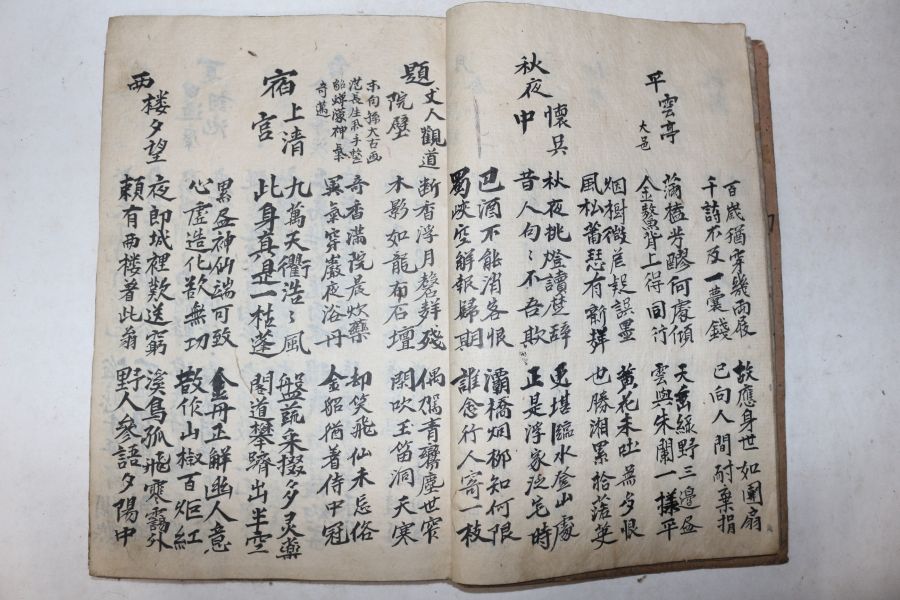 百歲猶穿幾兩屐 故應身世如團扇
千詩不及一囊錢 已向人間耐棄捐
平雲亭 大邑
滿榼芳醪何處傾 天綠野三邊盡
金鰲背上得同行 雲與朱闌一樣平
烟樹微茫疑誤墨 黃花未吐無多恨
風松蕭瑟有新聲 也勝湘累拾落英
秋夜懷吳中
秋夜挑燈讀楚辞 更堪臨水登山處
昔人句〻不吾欺 正是浮家泛宅時
巴酒不能消客恨 灞橋烟柳知何限
蜀峽空解報歸期 誰念行人寄一枝
題丈人觀道院壁
木向孫太古画
范長生風手整
貂蟬深神氣
奇邁
断香浮月磬聲殘 偶駕青鸞塵世窄
木影如龍布石壇 閑吹玉笛洞天寒
奇香滿院晨炊藥 却笑飛仙未忘俗
異氣穿巖夜浴丹 金貂猶着侍中冠
宿上清宮
九萬天衢浩〻風 盤蔬采掇多灵藥
此身真是一枯蓬 閣道攀躋出半空
累盡神仙端可致 金丹正解幽人意
心虛造化欲無功 散作山椒百炬紅
西樓夕望
夜郎城裡歎途窮 溪鳥孤飛寒靄外
賴有西樓著此翁 野人參語夕陽中